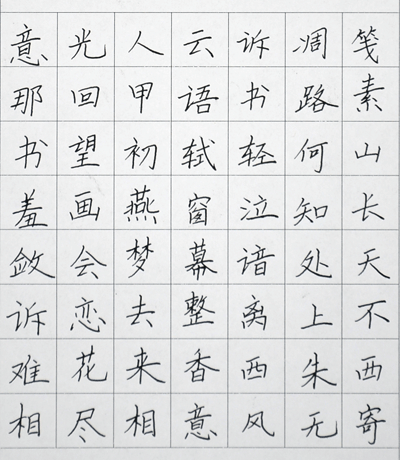 笺素山长天不西寄
凋路何知处上朱无
诉书轻泣谙离西风
云语轼窗幕整香意
人甲初燕梦去来相
光回望画会恋花尽
意那书羞敛诉难相